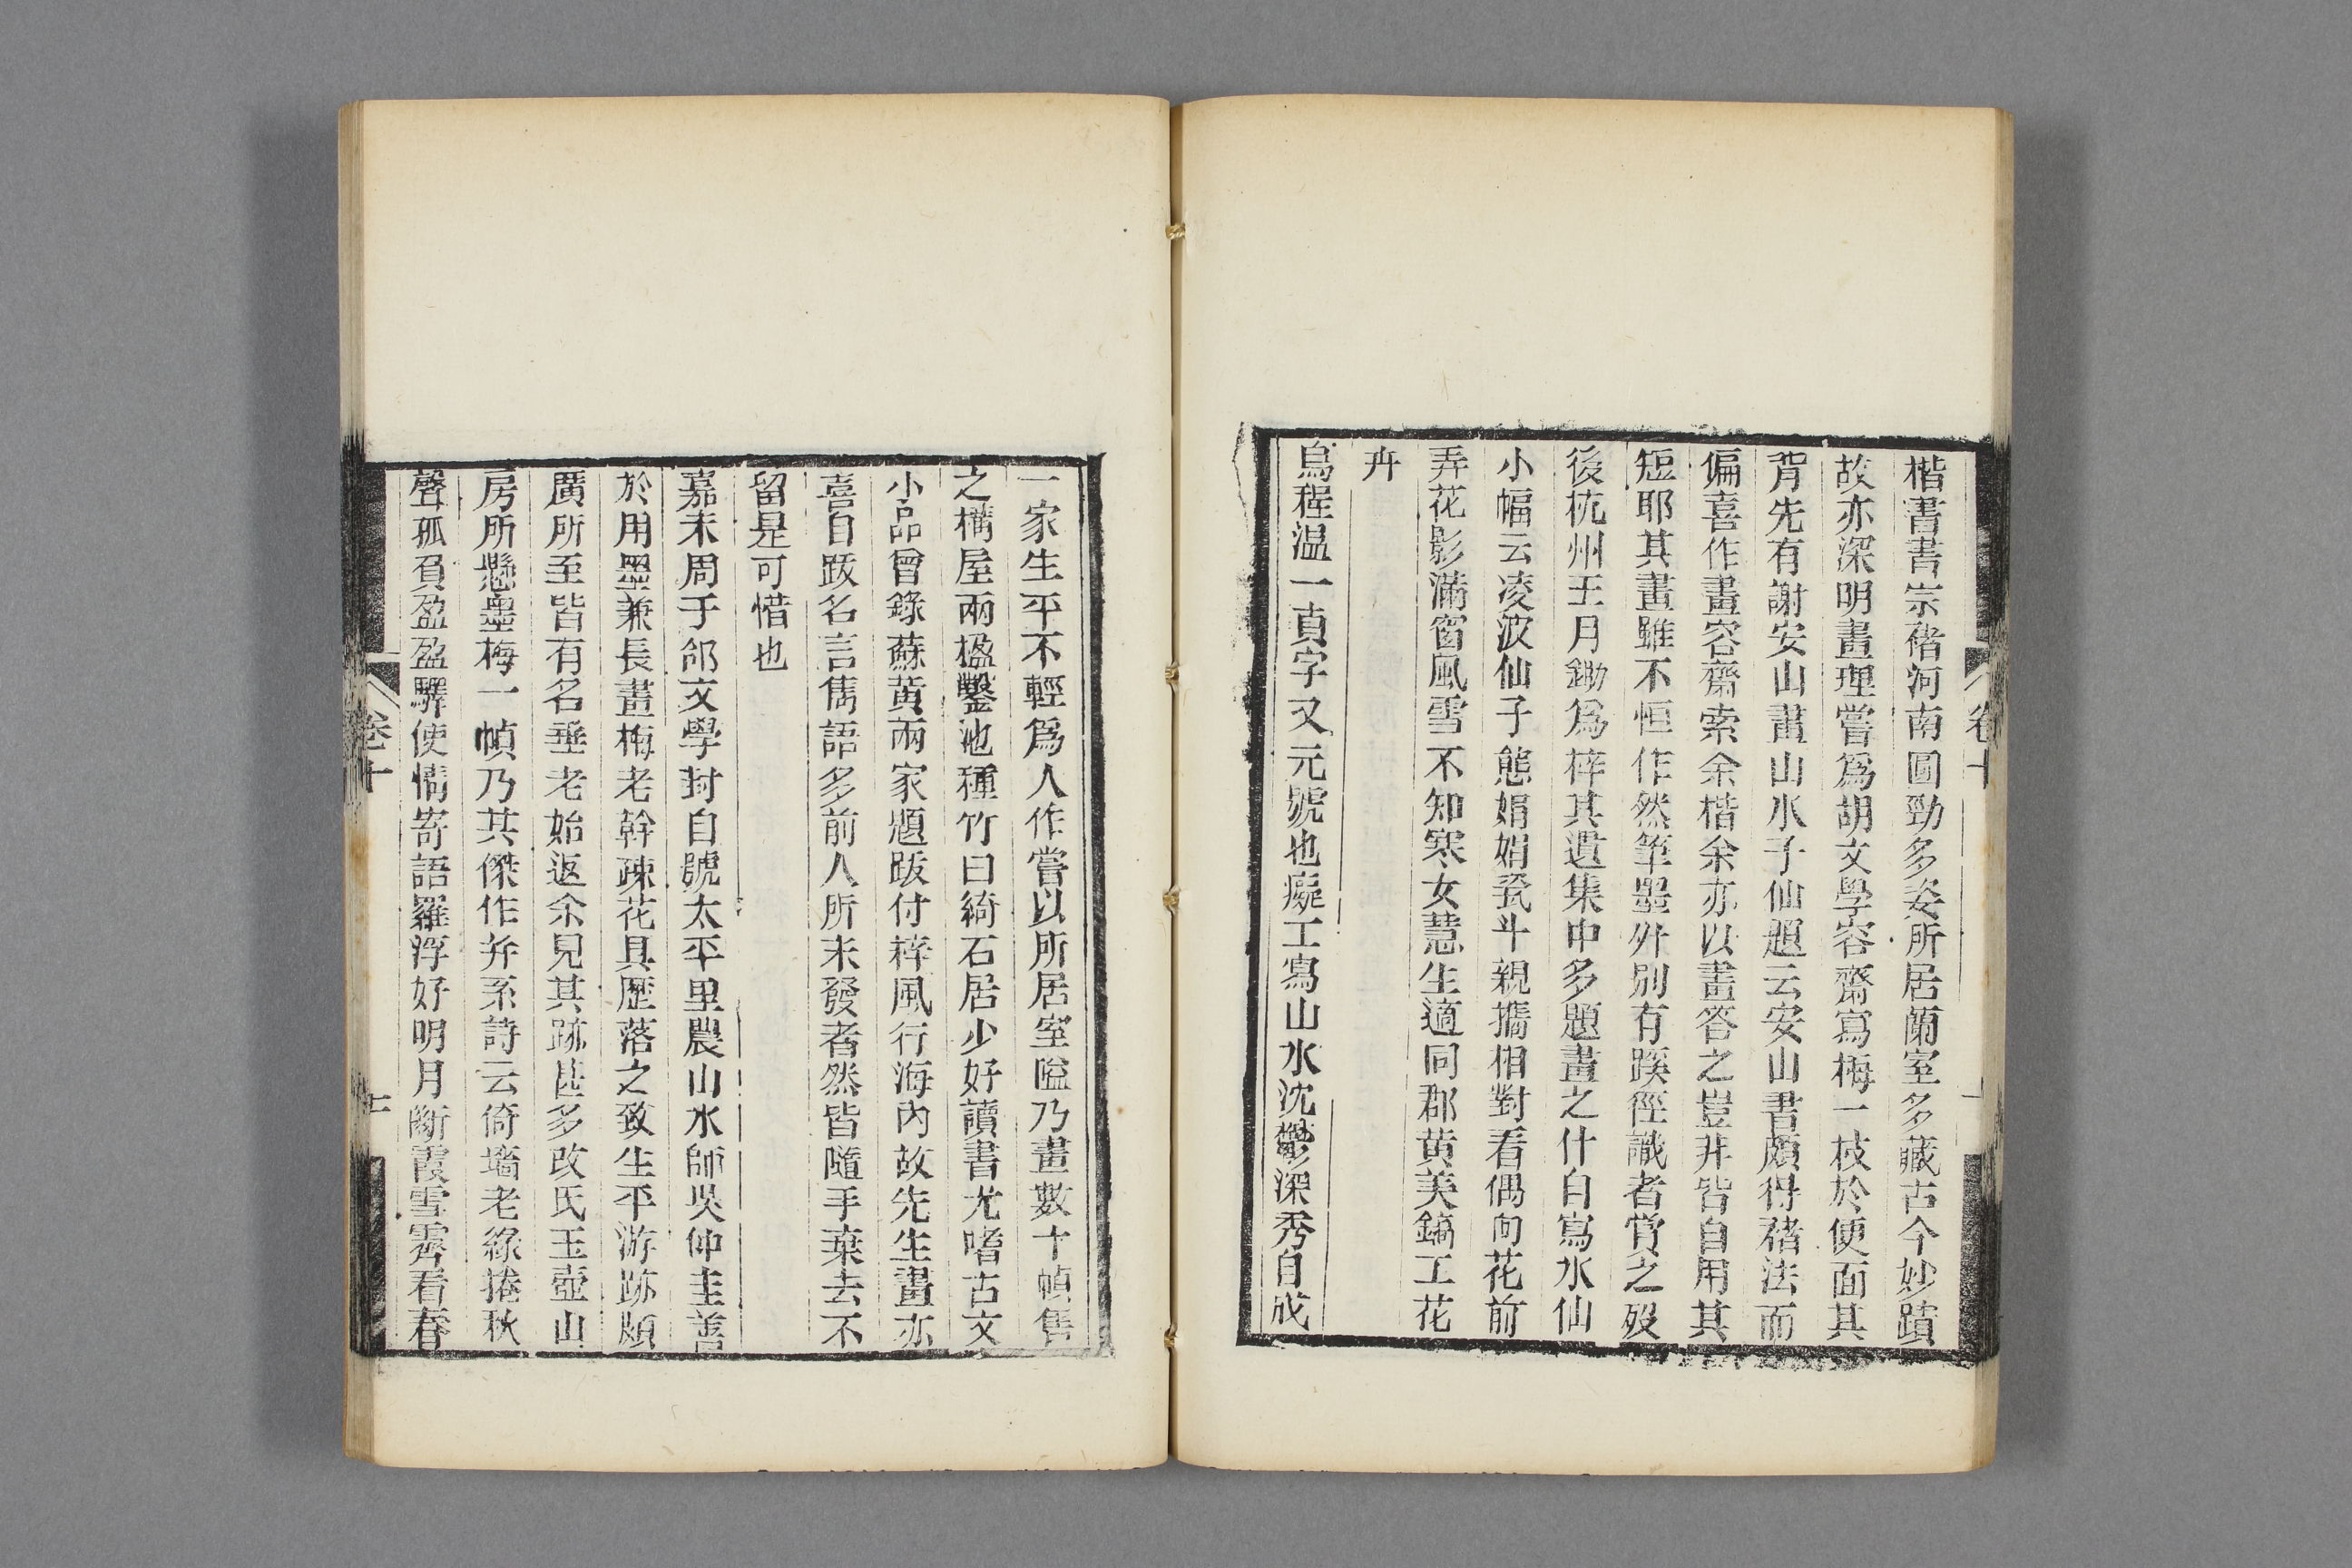 楷書書宗褚河南圓勁多姿所居蘭室多藏古今妙蹟
故亦深明畫理嘗爲胡文學容齋寫梅一枝於便面其
背先有謝安山畫山水子仙題云安山書頗得褚法而
偏喜作畫容齋索余楷余亦以畫答之豈非皆自用其
短耶其畫雖不恒作然筆墨外別有蹊徑識者賞之歿
後杭州王月鋤爲梓其遺集中多題畫之什自寫水仙
小幅云凌波仙子態娟娟甆斗親攜相對看偶向花前
弄花影滿窗風雪不知寒女慧生適同郡黄芙鏑工花
卉
烏程温一貞字又元號也癡工寫山水沈鬱深秀自成
卷十
一家生平不輕爲人作嘗以所居室隘乃畫數十幀售
之構屋兩楹鑿池種竹曰綺石居少好讀書尤嗜古文
小品曾錄蘇黄兩家題跋付梓風行海内故先生畫亦
喜自跋名言儁語多前人所未發者然皆隨手棄去不
留是可惜也
嘉禾周于邰文學封自號太平里農山水師吳仲圭善
於用墨兼長畫梅老幹疎花具歷落之致生平游跡頗
廣所至皆有名垂老始返余見其跡甚多改氏玉壺山
房所懸墨梅一幀乃其傑作并系詩云倚墻老綠捲秋
聲孤負盈盈驛使情寄語羅浮好明月斷霞雪霽看春
卷十